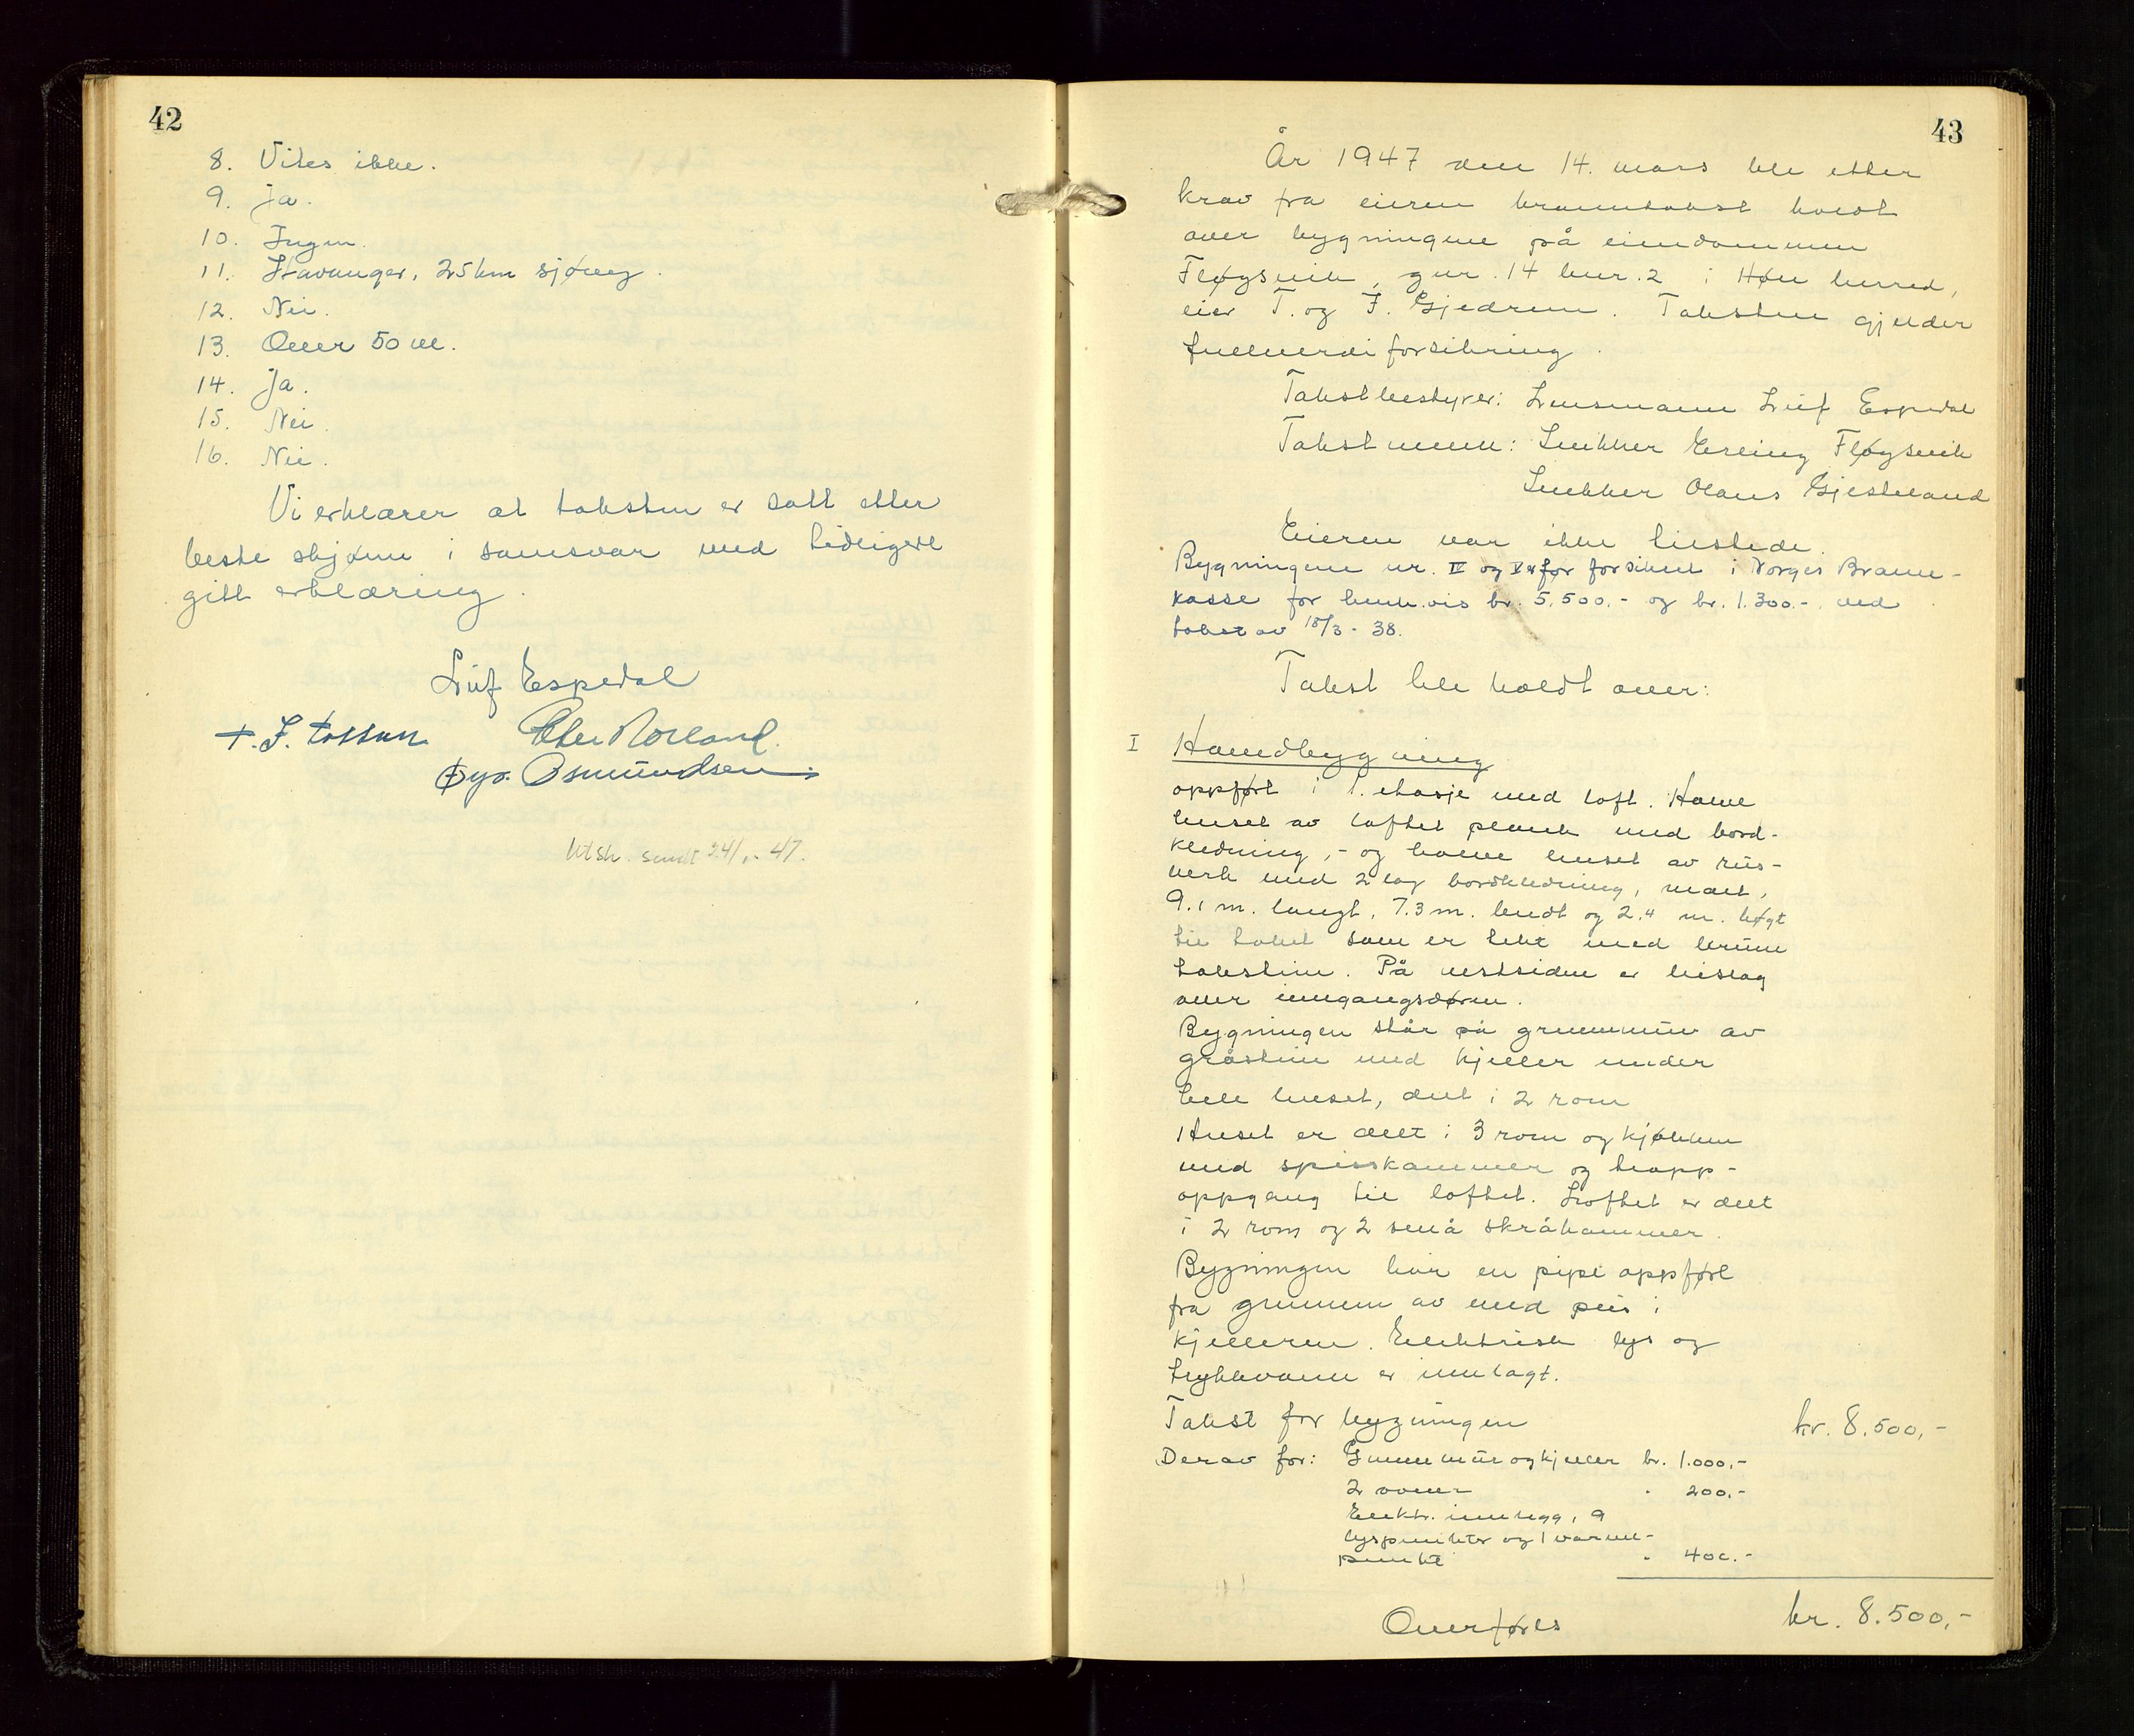 42
8. Vites ikke.
9. Ja.
10. Ingen.
11. Stavanger, 25 km sjøveg.
12. Nei.
13. Over 50 m.
14. Ja.
15. Nei.
16. Nei.
Vi erklærer at taksten er satt etter
beste skjønn i samsvar med tidligere
gitt erklæring.
Leif Espedal
T. J. Tossun
Øyv. Osmundsen.
Utskr. sendt 24/1. 47.
43
År 1947 den 14. mars ble etter
krav fra eieren branntakst holdt
over bygningene på eiendommen
Fløysvik, gnr. 14 bnr. 2 i Høle herred,
eier T. og F. Gjedrem. Taksten gjelder
fullverdiforsikring.
Takstbestyrer: Lensmann Leif Espedal
Takstmenn: Snikker Erling Fløysvik
Snekker Olaus Gjesteland
Eieren var ikke tilstede.
Bygningene nr. IV og V er før forsikret i Norges Brann-
kasse for henh.vis kr. 5.500.- og kr. 1.300.-. ved
takst av 18/3 - 38.
Takst ble holdt over:
I
oppført i 1. etasje med loft. Halve
huset av laftet plank med bord-
kledning, - og halve huset av reis-
verk med 2 lag bordkledning, malt,
9.1 m. langt, 7.3 m. bredt og 2.4 m. høgt
til taket som er tekt med brune
takstein. På vestsiden er bislag
over inngangsdøren.
Bygningen står på grunnmur av
gråstein med kjeller under
hele huset, delt i 2 rom
Huset er delt i 3 rom og kjøkken
med spisskammer og trapp-
oppgang til loftet. Loftet er delt
i 2 rom og 2 små skråkammer.
Bygningen har en pipe oppført
fra grunnen av med peis i
kjelleren. Elektrisk lys og
trykkvann er innlagt.
Takst for bygningen kr. 8.500,-
Derav for: Grunnmur og kjeller kr. 1.000.-
2 ovner " 200.-
Elektr. innlegg, 9
lyspunkter og 1 varme-
punkt " 400.-
Overføres kr. 8.500,-